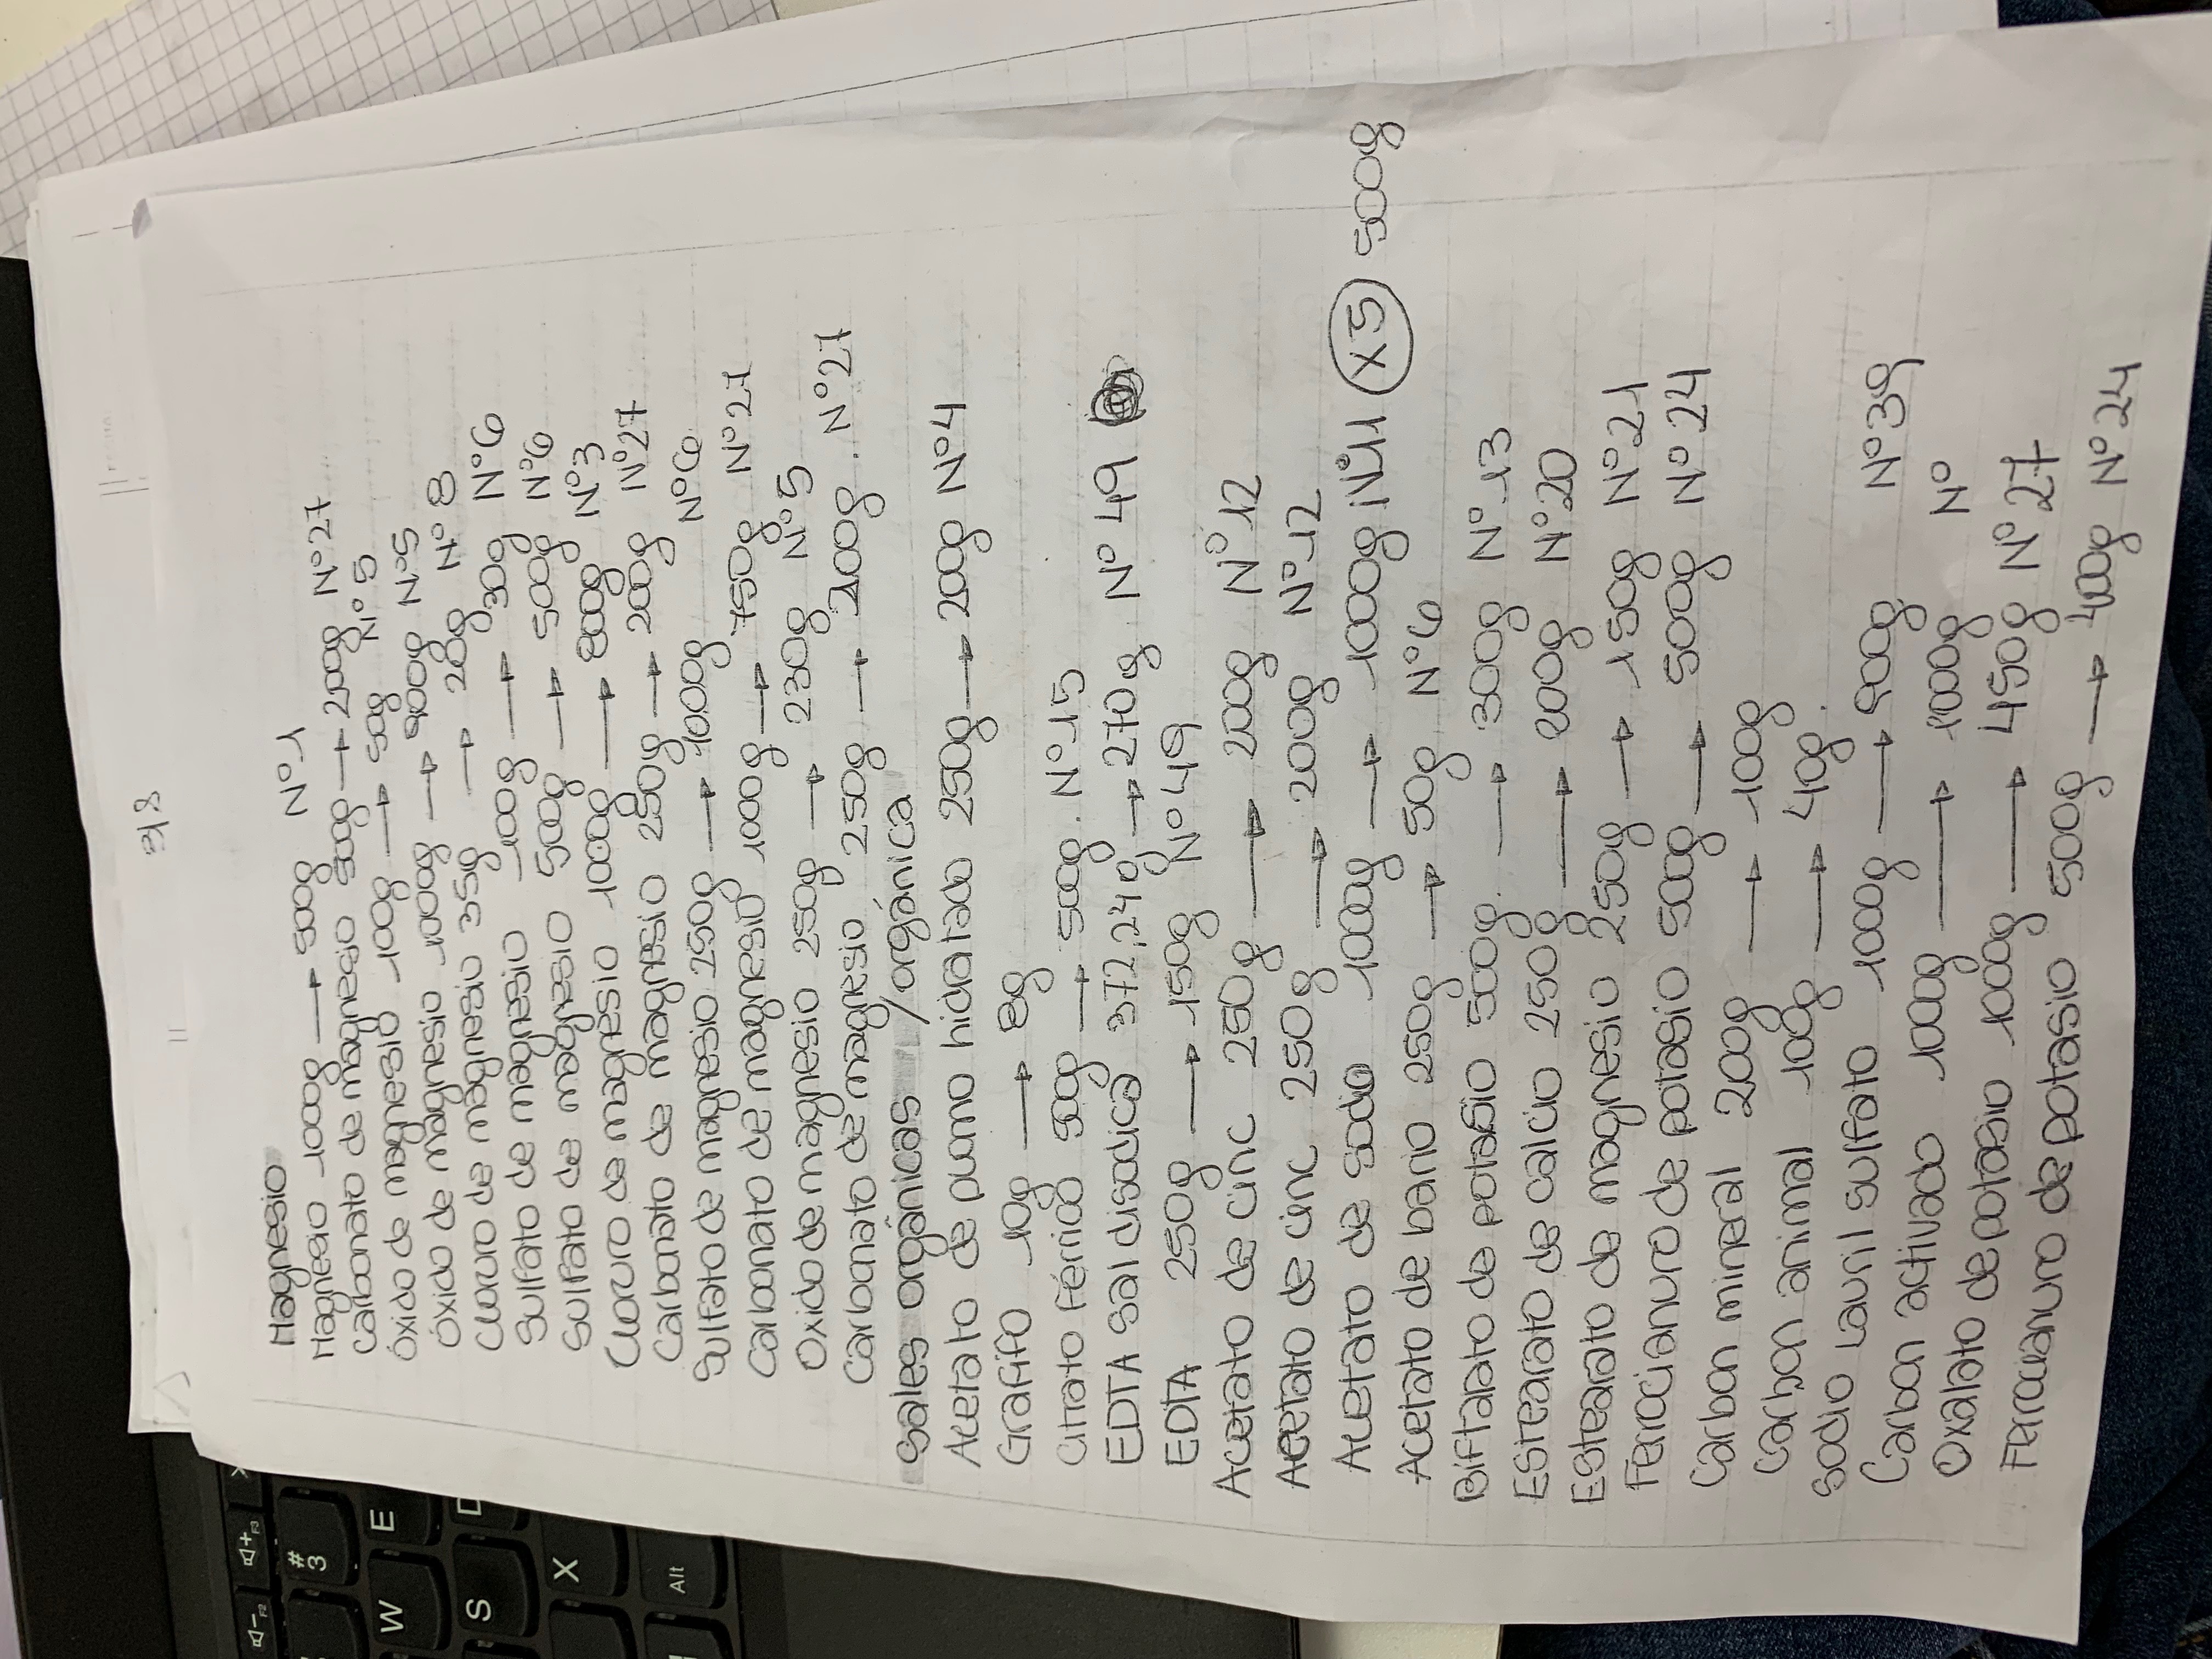 3/8
Magnesio
Magnesio 1000g → 500g N°1
Carbonato de magnesio 500g → 200g N°27
Óxido de magnesio 100g → 50g N°5
Óxido de magnesio 1000g → 900g N°5
Cloruro de magnesio 35g → 20g N°8
Sulfato de magnesio 100g → 30g N°6
Sulfato de magnesio 500g → 500g N°6
Cloruro de magnesio 1000g → 800g N°3
Carbonato de magnesio 250g → 200g N°27
Sulfato de magnesio 250g → 1000g N°6
Carbonato de magnesio 1000g → 750g N°27
Oxido de magnesio 250g → 230g N°5
Carbonato de magnesio 250g → 200g. N°27
Sales orgânicas /orgánica
Acetato de plomo hidratado 250g → 200g N°4
Grafifo 10g → 8g
Citrato Férrico 500g → 500g. N°15
EDTA sal disodica 372,24g → 270g N°49
EDTA 250g → 150g N°49
Acetato de cinc 250g → 200g N°12
Acetato de cinc 250g → 200g N°12
Acetato de sodio 1000g → 1000g N°11 X5 500g
Acetato de bario 250g → 50g N°6
Biftalato de potasio 500g. → 300g N°13
Estearato de calcio 250g → 200g N°20
Estearato de magnesio 250g → 150g N°21
Ferrocianuro de potasio 500g → 500g N°24
Carbon mineral 200g → 100g
Carbon animal 100g → 40g.
Sodio Lauril sulfato 1000g → 900g N°39
Carbon activado 1000g → 1000g N°
Oxalato de potasio 1000g → 450g N°27
Ferrocianuro de potasio 500g → 400g N°24
# 3
W E
S D
X
Alt
F2
F3